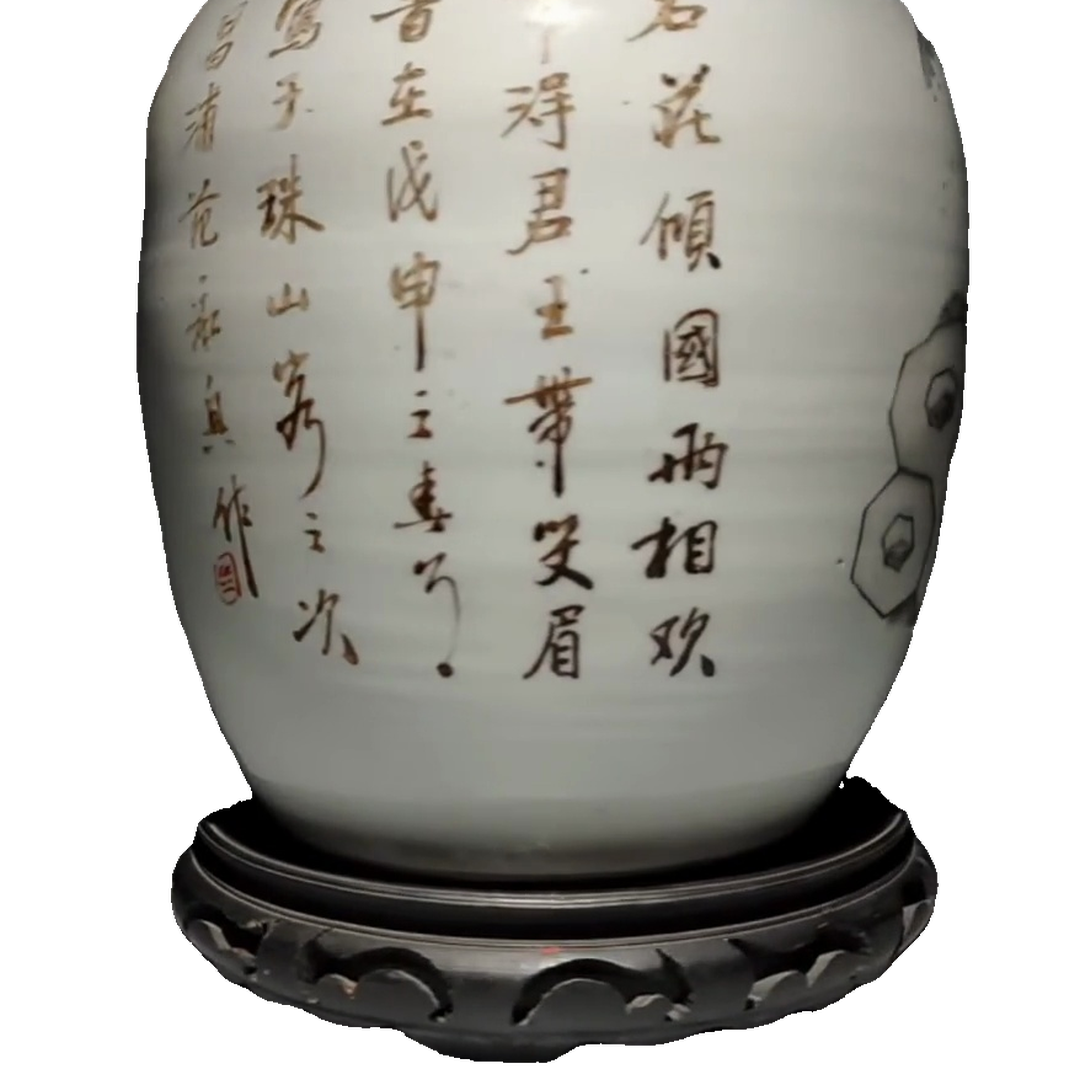 名花傾國兩相欢
得君王帶笑眉
旹在戊申之春月
寫于珠山客之次
昌浦范作